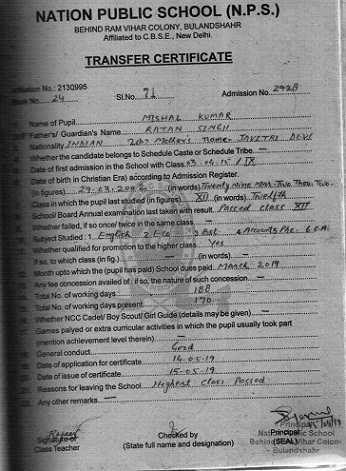 NATION PUBLIC SCHOOL (N.P.S.)
BEHIND RAM VIHAR COLONY, BULANDSHAHR
Affiliated to C.B.S.E., New Delhi.
TRANSFER CERTIFICATE
Affiliation No.: 2130995
Book No. 24 Sl.No. 71 Admission No. 2428
Name of Pupil MISHAL KUMAR
Father's/ Guardian's Name RATAN SINGH
Nationality INDIAN Mother's Name JAVITRI DEVI
Whether the candidate belongs to Schedule Caste or Schedule Tribe
Date of first admission in the School with Class 03-04-15 / IX
Date of birth in Christian Era) according to Admission Register.
(in figures) 29.03.2002 (in words) Twenty Nine Two Thou. Two
Class in which the pupil last studied (in figures) XII (in words) Twelfth
School/ Board Annual examination last taken with result Passed class XII
Whether failed, if so once/ twice in the same class
Subject Studied : 1 English 2 Eco 3 4 Accounts 5 6
Whether qualified for promotion to the higher class Yes
If so, to which class (in fig.) (in words)
Month upto which the (pupil has paid) School dues paid March, 2019
Any fee concession availed of : if so, the nature of such concession
Total No. of working days 188
Total No. of working days present 170
Whether NCC Cadet/ Boy Scout/ Girl Guide (details may be given)
Games palyed or extra curricular activities in which the pupil usually took part
(mention achievement level therein)
General conduct Good
Date of application for certificate 14-05-19
Date of issue of certificate 15-05-19
Reasons for leaving the School Highest Class Passed
Any other remarks
Signature of
Class Teacher
Checked by
(State full name and designation)
Principal
(SEAL)
Principal
Nation Public School
Behind Ram Vihar Colony
Bulandshahr